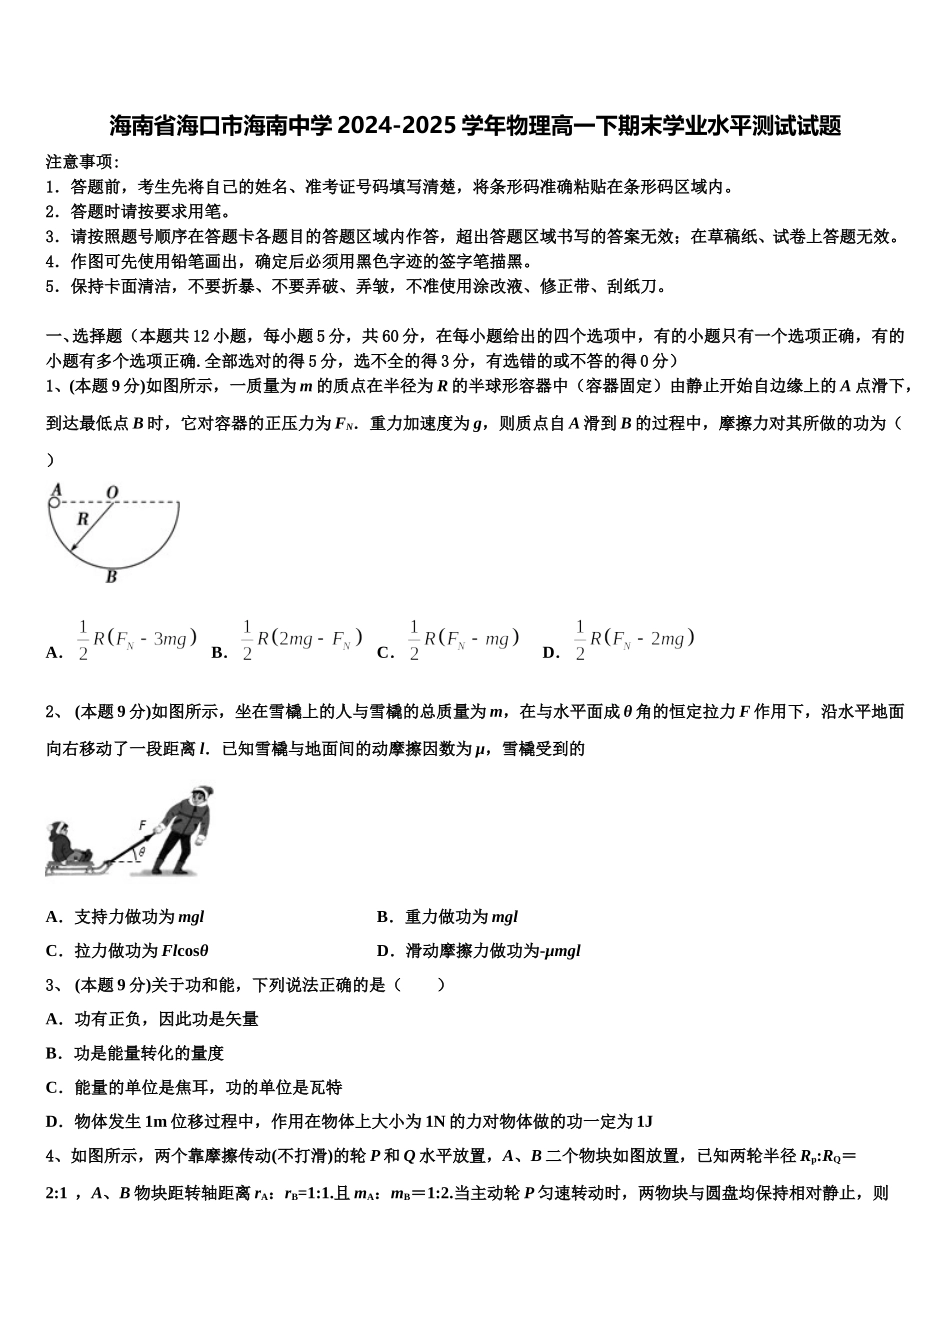 海南省海口市海南中学 2024-2025 学年物理高一下期末学业水平测试试题
注意事项:
1．答题前，考生先将自己的姓名、准考证号码填写清楚，将条形码准确粘贴在条形码区域内。
2．答题时请按要求用笔。
3．请按照题号顺序在答题卡各题目的答题区域内作答，超出答题区域书写的答案无效；在草稿纸、试卷上答题无效。
4．作图可先使用铅笔画出，确定后必须用黑色字迹的签字笔描黑。
5．保持卡面清洁，不要折暴、不要弄破、弄皱，不准使用涂改液、修正带、刮纸刀。
一、选择题（本题共 12 小题，每小题 5 分，共 60 分，在每小题给出的四个选项中，有的小题只有一个选项正确，有的
小题有多个选项正确.全部选对的得 5 分，选不全的得 3 分，有选错的或不答的得 0 分）
1、(本题 9 分)如图所示，一质量为 m 的质点在半径为 R 的半球形容器中（容器固定）由静止开始自边缘上的 A 点滑下，
到达最低点 B 时，它对容器的正压力为 FN．重力加速度为 g，则质点自 A 滑到 B 的过程中，摩擦力对其所做的功为（
）
A O
R
B
A． 1/2 R(FN - 3mg) B． 1/2 R(2mg - FN) C． 1/2 R(FN - mg) D． 1/2 R(FN - 2mg)
2、 (本题 9 分)如图所示，坐在雪橇上的人与雪橇的总质量为 m，在与水平面成 θ 角的恒定拉力 F 作用下，沿水平地面
向右移动了一段距离 l．已知雪橇与地面间的动摩擦因数为 μ，雪橇受到的
F
θ
A．支持力做功为 mgl B．重力做功为 mgl
C．拉力做功为 Flcosθ D．滑动摩擦力做功为-μmgl
3、 (本题 9 分)关于功和能，下列说法正确的是（　　）
A．功有正负，因此功是矢量
B．功是能量转化的量度
C．能量的单位是焦耳，功的单位是瓦特
D．物体发生 1m 位移过程中，作用在物体上大小为 1N 的力对物体做的功一定为 1J
4、如图所示，两个靠摩擦传动(不打滑)的轮 P 和 Q 水平放置，A、B 二个物块如图放置，已知两轮半径 Rp:RQ＝
2:1 ，A、B 物块距转轴距离 rA：rB=1:1.且 mA：mB＝1:2.当主动轮 P 匀速转动时，两物块与圆盘均保持相对静止，则